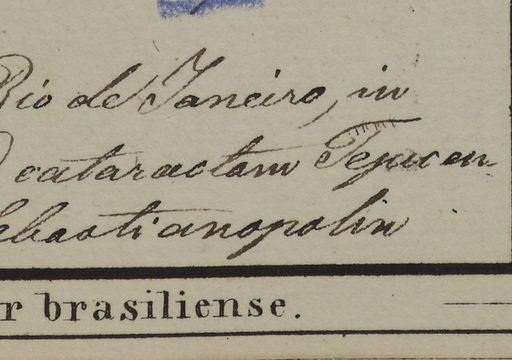 Rio de Janeiro, in
cataractam Tejucen
ebastianopolin
r brasiliense.